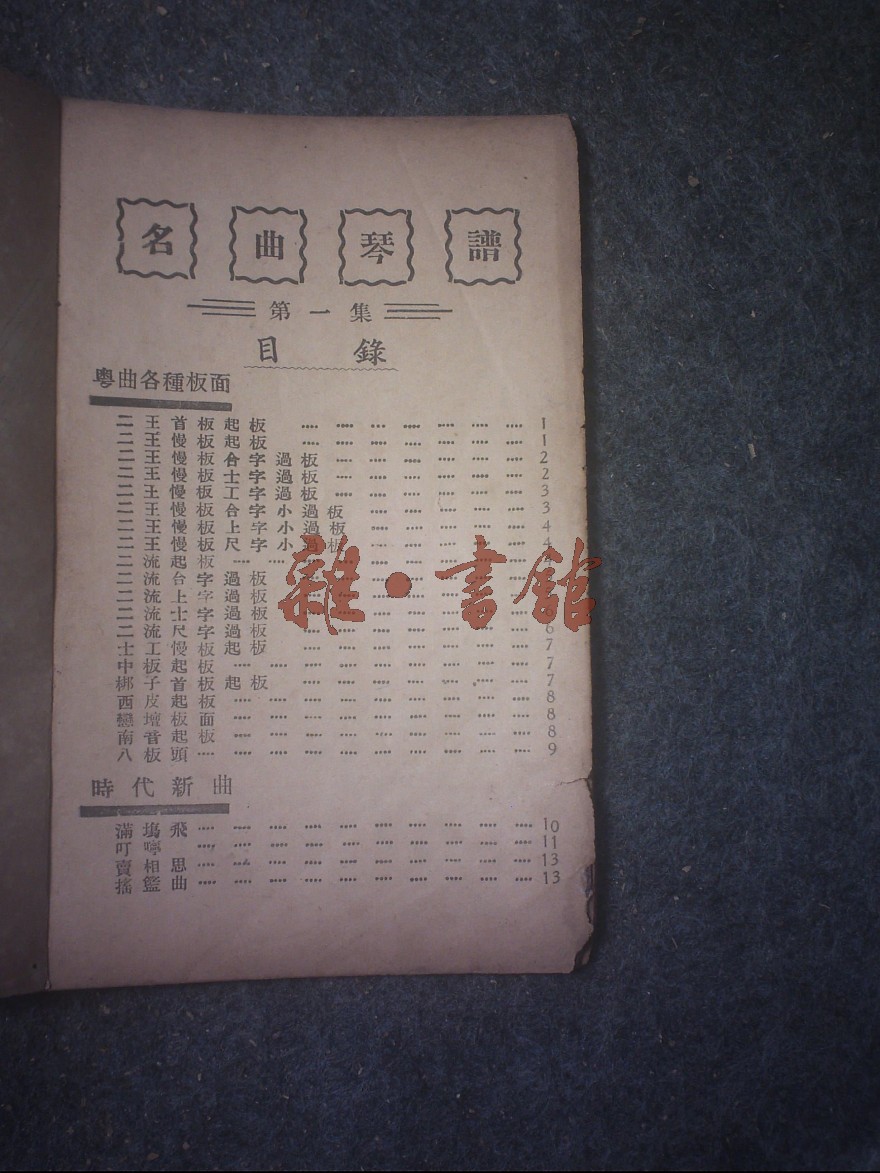 名曲琴譜
第一集
目錄
粵曲各種板面
二王首板起板 .... .... .... .... .... .... .... 1
二王慢板起板 .... .... .... .... .... .... .... 1
二王慢板合字過板 .... .... .... .... .... .... 2
二王慢板士字過板 .... .... .... .... .... .... 2
二王慢板工字過板 .... .... .... .... .... .... 3
二王慢板合字小過板 .... .... .... .... .... 3
二王慢板上字小過板 .... .... .... .... .... 4
二王慢板尺字小過板 .... .... .... .... .... 4
二流起板 .... .... .... .... .... .... ....
二流合字過板 .... .... .... .... .... ....
二流上字過板 .... .... .... .... .... ....
二流士字過板 .... .... .... .... .... .... 6
二流尺字過板 .... .... .... .... .... .... 6
士工慢板起板 .... .... .... .... .... .... .... 7
中板起板 .... .... .... .... .... .... .... .... .... 7
梆子首板起板 .... .... .... .... .... .... .... 7
西皮起板 .... .... .... .... .... .... .... .... .... 8
戀壇板面 .... .... .... .... .... .... .... .... .... 8
南音起板 .... .... .... .... .... .... .... .... .... 8
八板頭 .... .... .... .... .... .... .... .... .... .... 9
時代新曲
滿塲飛 .... .... .... .... .... .... .... .... .... .... 10
叮嚀 .... .... .... .... .... .... .... .... .... .... 11
賣相思 .... .... .... .... .... .... .... .... .... .... 13
搖籃曲 .... .... .... .... .... .... .... .... .... .... 13
雜·書館